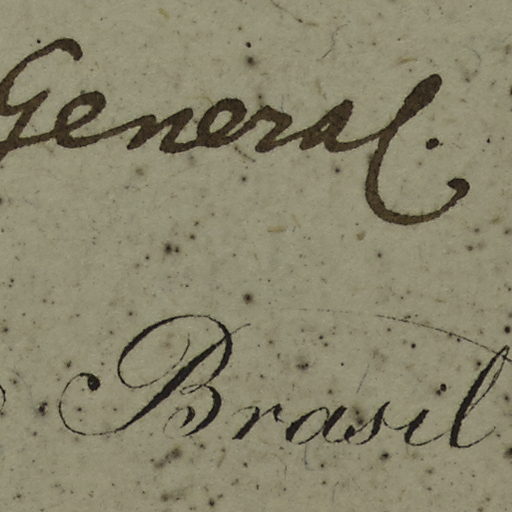 General.
Brasil